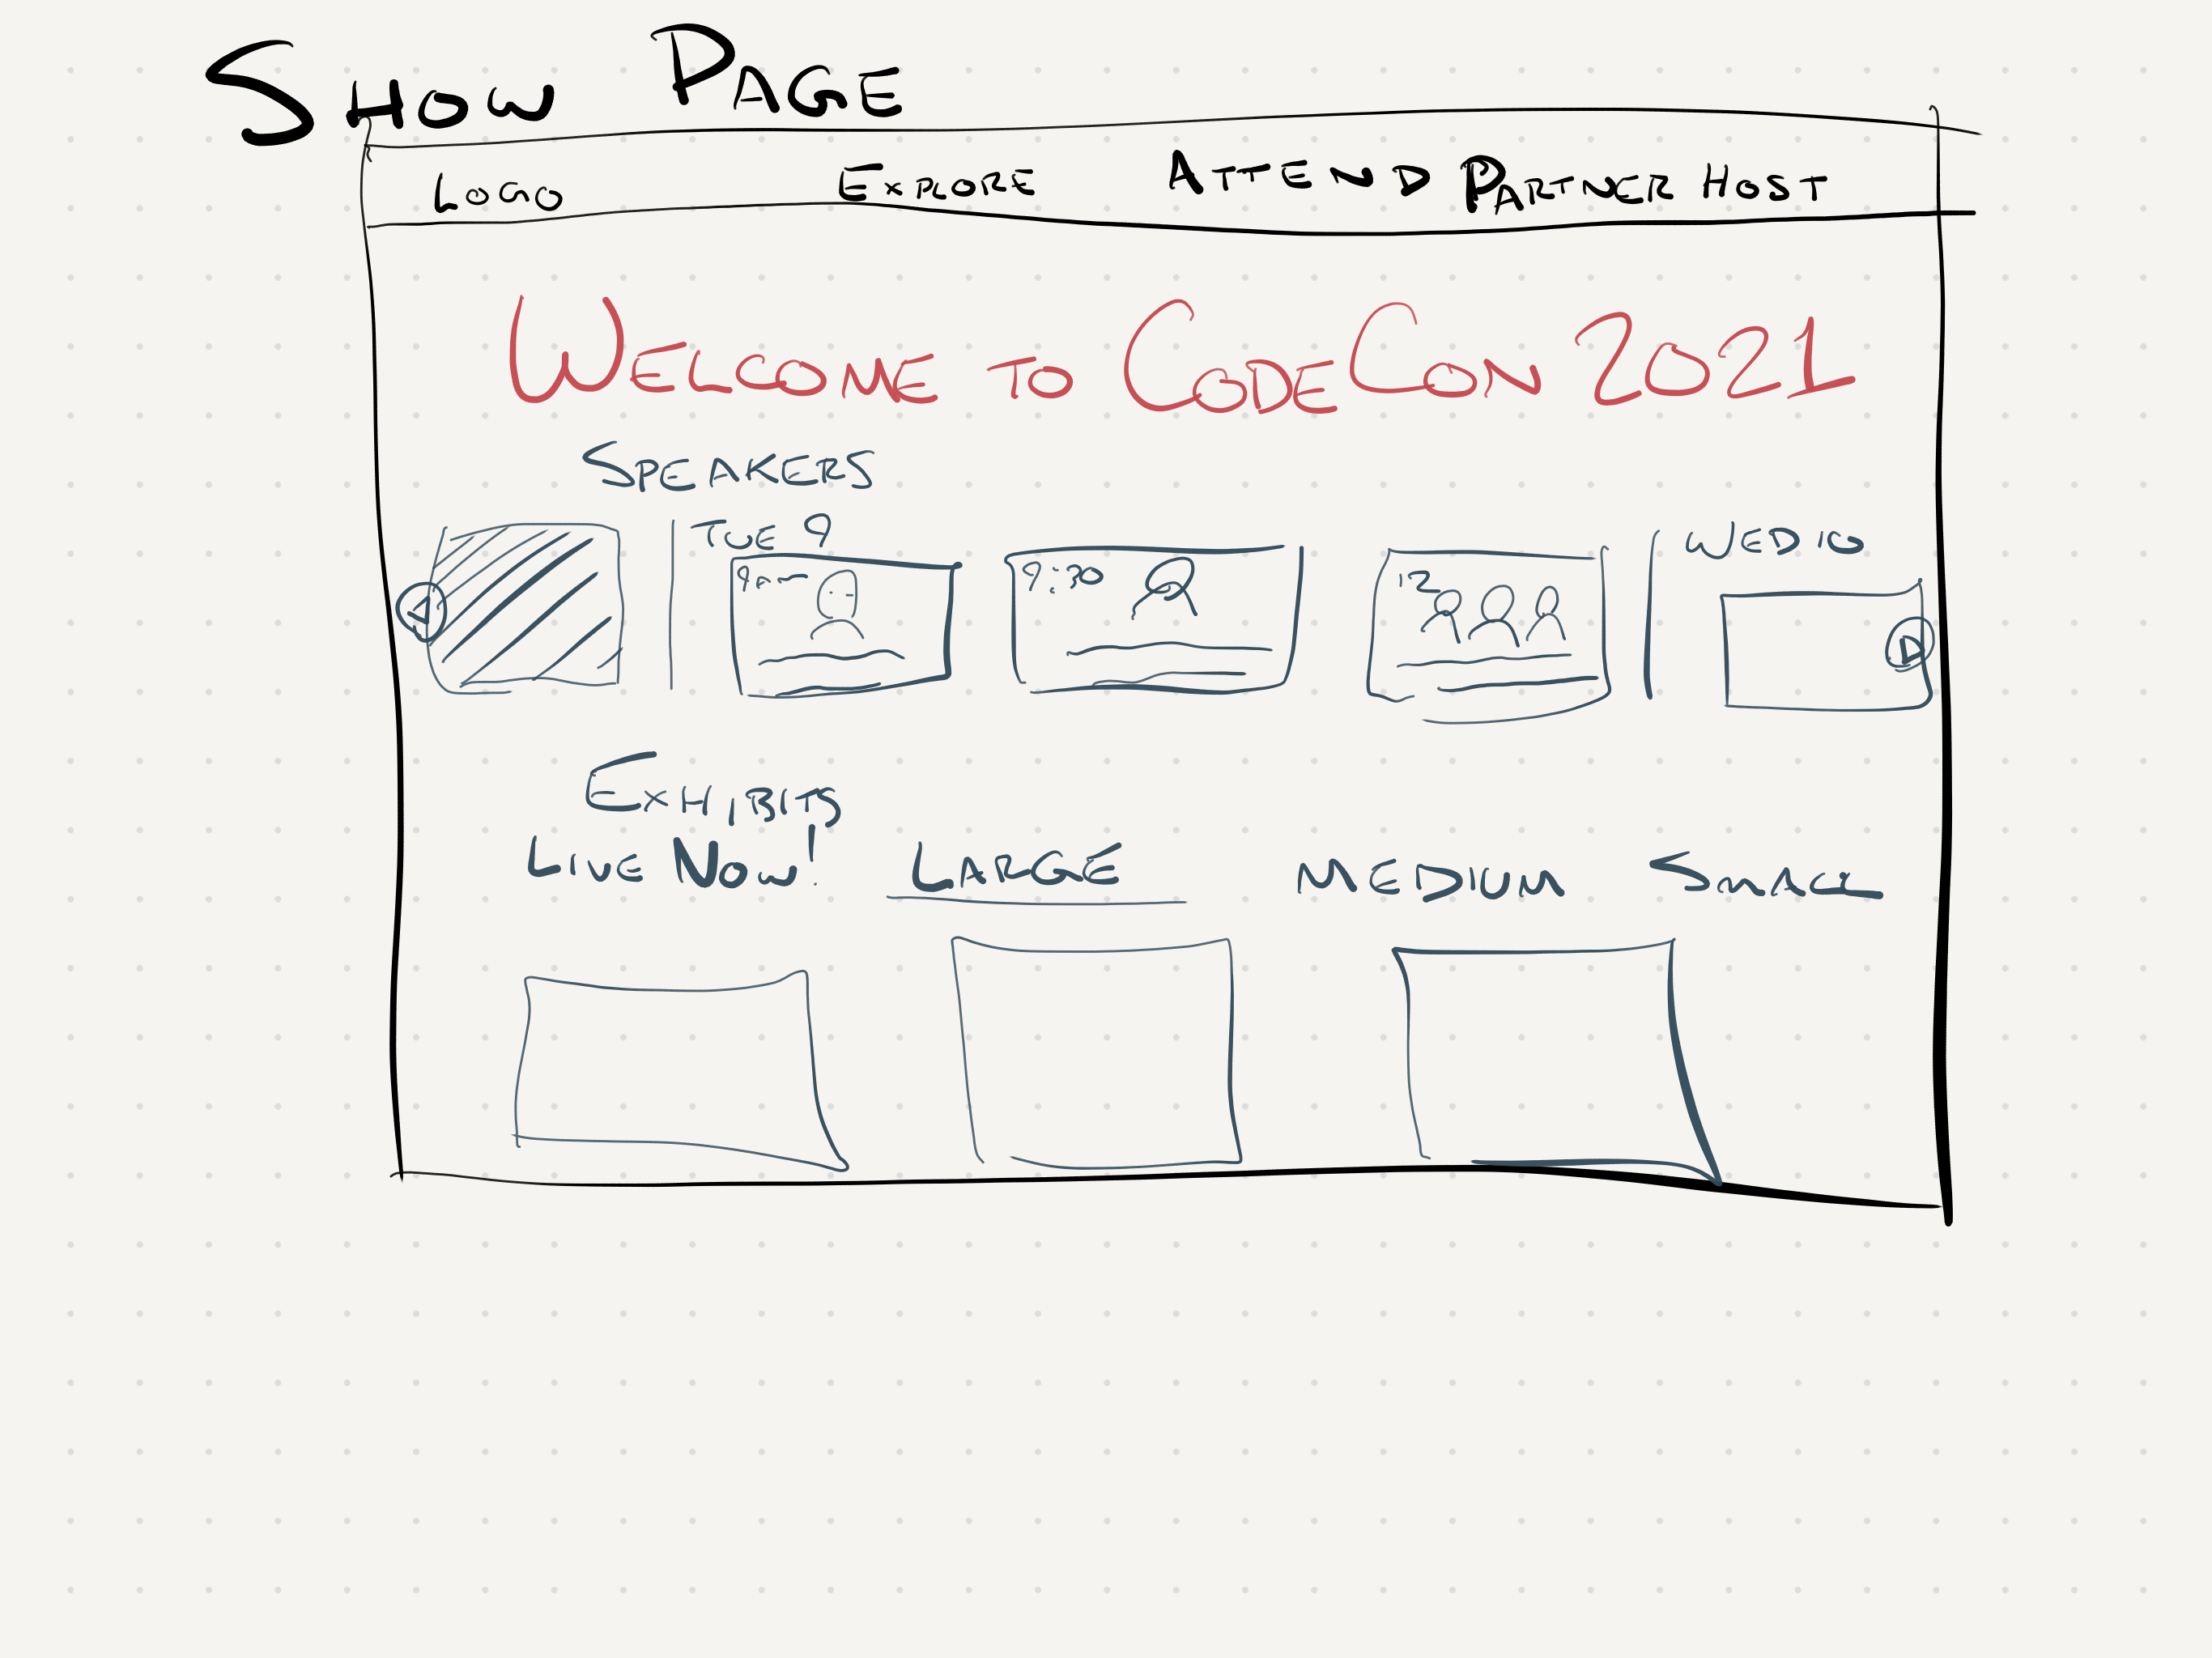 SHOW PAGE
LOGO EXPLORE ATTEND PARTNER HOST
WELCOME TO CODECON 2021
SPEAKERS
TUE 9
WED 10
9:30
12
EXHIBITS
LIVE NOW! LARGE MEDIUM SMALL